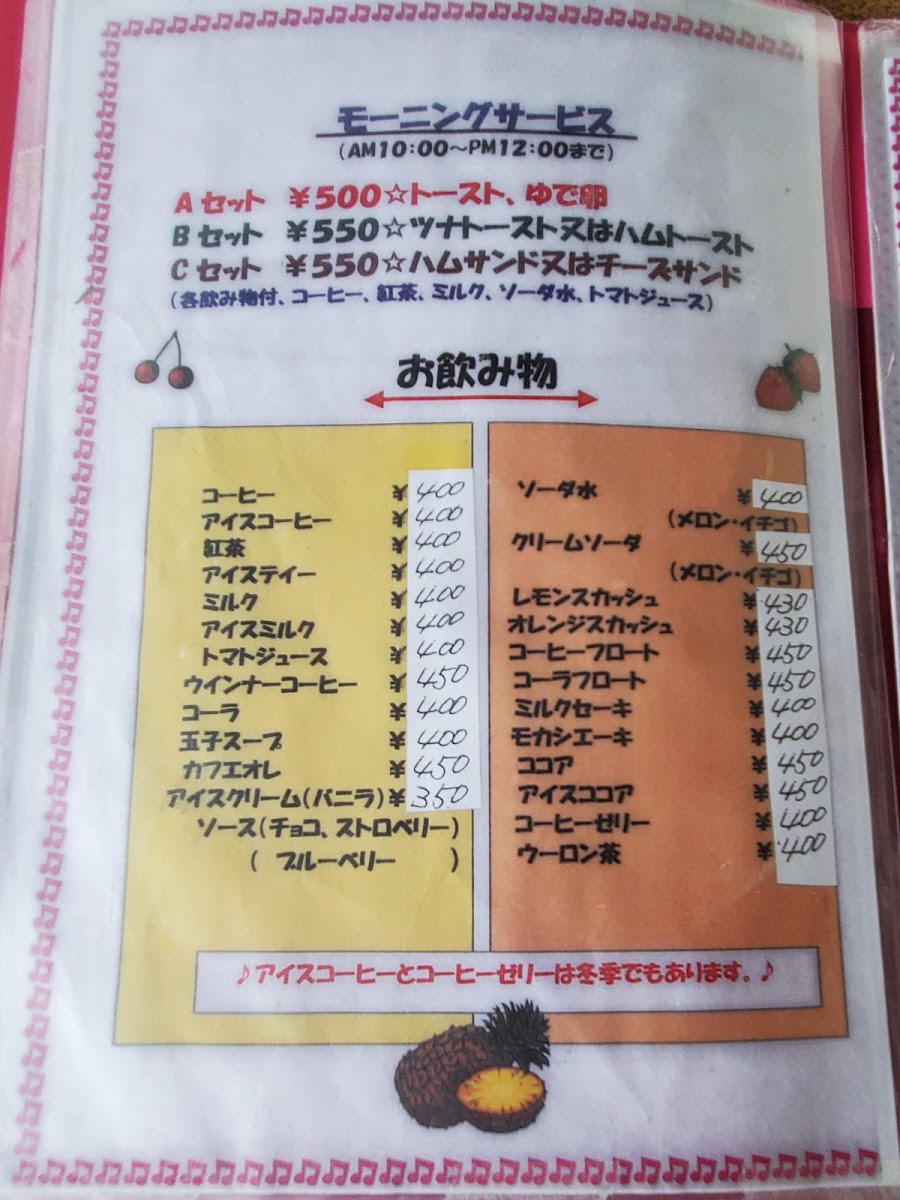 モーニングサービス
(AM10:00~PM12:00まで)
Aセット ¥500☆トースト、ゆで卵
Bセット ¥550☆ツナトースト又はハムトースト
Cセット ¥550☆ハムサンド又はチーズサンド
(各飲み物付、コーヒー、紅茶、ミルク、ソーダ水、トマトジュース)
お飲み物
コーヒー ¥400
アイスコーヒー ¥400
紅茶 ¥400
アイステイー ¥400
ミルク ¥400
アイスミルク ¥400
トマトジュース ¥400
ウインナーコーヒー ¥450
コーラ ¥400
玉子スープ ¥400
カフエオレ ¥450
アイスクリーム(バニラ)¥350
ソース(チョコ、ストロベリー)
( ブルーベリー )
ソーダ水 ¥400
(メロン・イチゴ)
クリームソーダ ¥450
(メロン・イチゴ)
レモンスカッシュ ¥430
オレンジスカッシュ ¥430
コーヒーフロート ¥450
コーラフロート ¥450
ミルクセーキ ¥400
モカシエーキ ¥400
ココア ¥450
アイスココア ¥450
コーヒーゼリー ¥400
ウーロン茶 ¥400
♪アイスコーヒーとコーヒーゼリーは冬季でもあります。♪